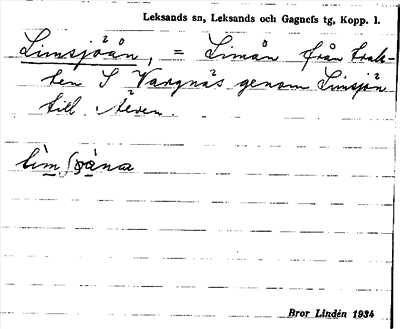 Leksands sn, Leksands och Gagnefs tg, Kopp. l.
Limsjöån, = Limån från trak-
ten S Vargnäs genom Limsjön
till
Bror Lindén 1934